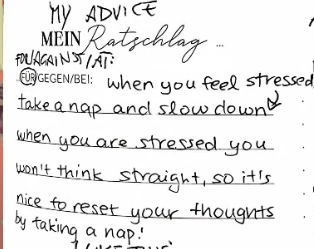 MY ADVICE
MEIN Ratschlag ...
FOR/AGAINST/AT:
FÜR/GEGEN/BEI: when you feel stressed
take a nap and slow down
when you are stressed you
won't think straight, so it's
nice to reset your thoughts
by taking a nap!